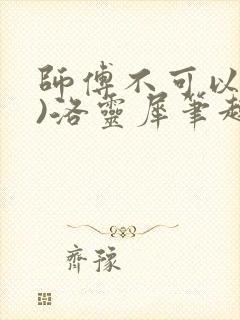 師傅不可以
)洛靈犀筆趣
齊豫